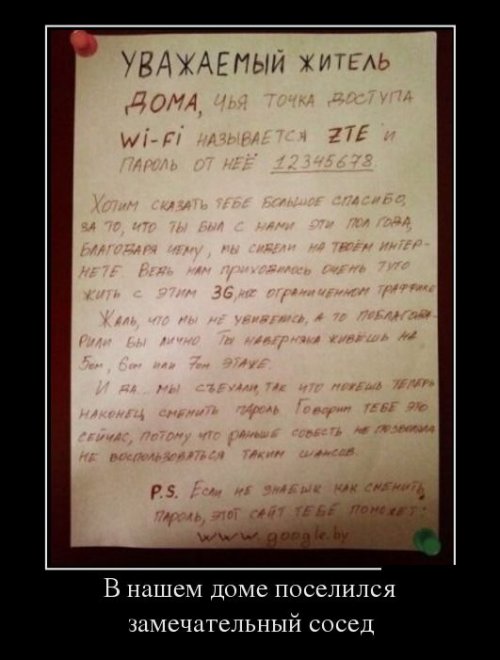 УВАЖАЕМЫЙ ЖИТЕЛЬ
ДОМА, ЧЬЯ ТОЧКА ДОСТУПА
Wi-Fi НАЗЫВАЕТСЯ ZTE И
ПАРОЛЬ ОТ НЕЁ 12345678
ХОТИМ СКАЗАТЬ ТЕБЕ БОЛЬШОЕ СПАСИБО,
ЗА ТО, ЧТО ТЫ БЫЛ С НАМИ ЭТИ ПОЛ ГОДА,
БЛАГОДАРЯ ЧЕМУ, МЫ СИДЕЛИ НА ТВОЁМ ИНТЕР-
НЕТЕ. ВЕДЬ НАМ ПРИХОДИЛОСЬ ОЧЕНЬ ТУГО
ЖИТЬ С ЭТИМ 3G, ОГРАНИЧЕННОМ ТРАФФИКЕ
ЖАЛЬ, ЧТО МЫ НЕ УВИДЕЛИСЬ, А ТО ПОБЛАГОДА-
РИЛИ БЫ ЛИЧНО. ТЫ НАВЕРНЯКА ЖИВЁШЬ НА
5ом, 6ом ИЛИ 7ом ЭТАЖЕ.
И ДА.. МЫ СЪЕХАЛИ, ТАК ЧТО МОЖЕШЬ ТЕПЕРЬ
НАКОНЕЦ СМЕНИТЬ ПАРОЛЬ. ГОВОРИМ ТЕБЕ ЭТО
СЕЙЧАС, ПОТОМУ ЧТО РАНЬШЕ СОВЕСТЬ НЕ ПОЗВОЛИЛА
НЕ ВОСПОЛЬЗОВАТЬСЯ ТАКИМ ШАНСОМ.
P.S. ЕСЛИ НЕ ЗНАЕШЬ КАК СМЕНИТЬ
ПАРОЛЬ, ЭТОТ САЙТ ТЕБЕ ПОМОЖЕТ:
www.google.by
В нашем доме поселился
замечательный сосед